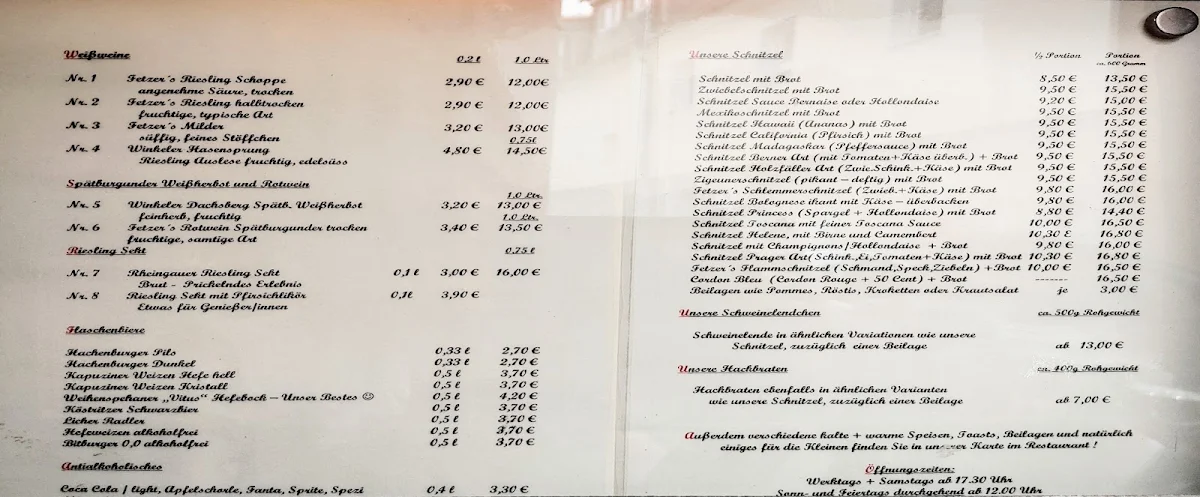 Weißweine 0,2 l 1,0 Ltr
Nr. 1 Fetzer´s Riesling Schoppe 2,90 € 12,00€
angenehme Säure, trocken
Nr. 2 Fetzer´s Riesling halbtrocken 2,90 € 12,00€
fruchtige, typische Art
Nr. 3 Fetzer´s Milder 3,20 € 13,00€
süffig, feines Stöffchen 0,75l
Nr. 4 Winkeler Hasensprung 4,80 € 14,50€
Riesling Auslese fruchtig, edelsüss
Spätburgunder Weißherbst und Rotwein
1,0 Ltr.
Nr. 5 Winkeler Dachsberg Spätb. Weißherbst 3,20 € 13,00 €
feinherb, fruchtig 1,0 Ltr.
Nr. 6 Fetzer´s Rotwein Spätburgunder trocken 3,40 € 13,50 €
fruchtige, samtige Art
Riesling Sekt 0,75 l
Nr. 7 Rheingauer Riesling Sekt 0,1 l 3,00 € 16,00 €
Brut - Prickelndes Erlebnis
Nr. 8 Riesling Sekt mit Pfirsichlikör 0,1l 3,90 €
Etwas für Genießer/innen
Flaschenbiere
Hachenburger Pils 0,33 l 2,70 €
Hachenburger Dunkel 0,33 l 2,70 €
Kapuziner Weizen Hefe hell 0,5 l 3,70 €
Kapuziner Weizen Kristall 0,5 l 3,70 €
Weihenspehaner „Vitus“ Hefebock – Unser Bestes ☺ 0,5 l 4,20 €
Köstritzer Schwarzbier 0,5 l 3,70 €
Licher Radler 0,5 l 3,70 €
Hefeweizen alkoholfrei 0,5 l 3,70 €
Bitburger 0,0 alkoholfrei 0,5 l 3,70 €
Antialkoholisches
Coca Cola / light, Apfelschorle, Fanta, Sprite, Spezi 0,4 l 3,30 €
Unsere Schnitzel ½ Portion Portion
ca. 500 Gramm
Schnitzel mit Brot 8,50 € 13,50 €
Zwiebelschnitzel mit Brot 9,50 € 15,50 €
Schnitzel Sauce Bernaise oder Hollondaise 9,20 € 15,00 €
Mexikoschnitzel mit Brot 9,50 € 15,50 €
Schnitzel Hawaii (Ananas) mit Brot 9,50 € 15,50 €
Schnitzel California (Pfirsich) mit Brot 9,50 € 15,50 €
Schnitzel Madagaskar (Pfeffersauce) mit Brot 9,50 € 15,50 €
Schnitzel Berner Art (mit Tomaten+Käse überb.) + Brot 9,50 € 15,50 €
Schnitzel Holzfäller Art (Zwie.Schink.+Käse) mit Brot 9,50 € 15,50 €
Zigeunerschnitzel (pikant – deftig) mit Brot 9,50 € 15,50 €
Fetzer´s Schlemmerschnitzel (Zwieb.+Käse) mit Brot 9,80 € 16,00 €
Schnitzel Bolognese ikant mit Käse – überbacken 9,80 € 16,00 €
Schnitzel Princess (Spargel + Hollondaise) mit Brot 8,80 € 14,40 €
Schnitzel Toscana mit feiner Toscana Sauce 10,00 € 16,50 €
Schnitzel Helene, mit Birne und Camembert 10,30 € 16,80 €
Schnitzel mit Champignons/Hollondaise + Brot 9,80 € 16,00 €
Schnitzel Prager Art( Schink,Ei,Tomaten+Käse) mit Brot 10,30 € 16,80 €
Fetzer´s Flammschnitzel (Schmand,Speck,Ziebeln) +Brot 10,00 € 16,50 €
Cordon Bleu (Cordon Rouge + 50 Cent) + Brot ------- 16,50 €
Beilagen wie Pommes, Röstis, Kroketten oder Krautsalat je 3,00 €
Unsere Schweinelendchen ca. 500g Rohgewicht
Schweinelende in ähnlichen Variationen wie unsere
Schnitzel, zuzüglich einer Beilage ab 13,00 €
Unsere Hackbraten ca. 400g Rohgewicht
Hackbraten ebenfalls in ähnlichen Varianten
wie unsere Schnitzel, zuzüglich einer Beilage ab 7,00 €
Außerdem verschiedene kalte + warme Speisen, Toasts, Beilagen und natürlich
einiges für die Kleinen finden Sie in unserer Karte im Restaurant !
Öffnungszeiten:
Werktags + Samstags ab 17.30 Uhr
Sonn- und Feiertags durchgehend ab 12.00 Uhr